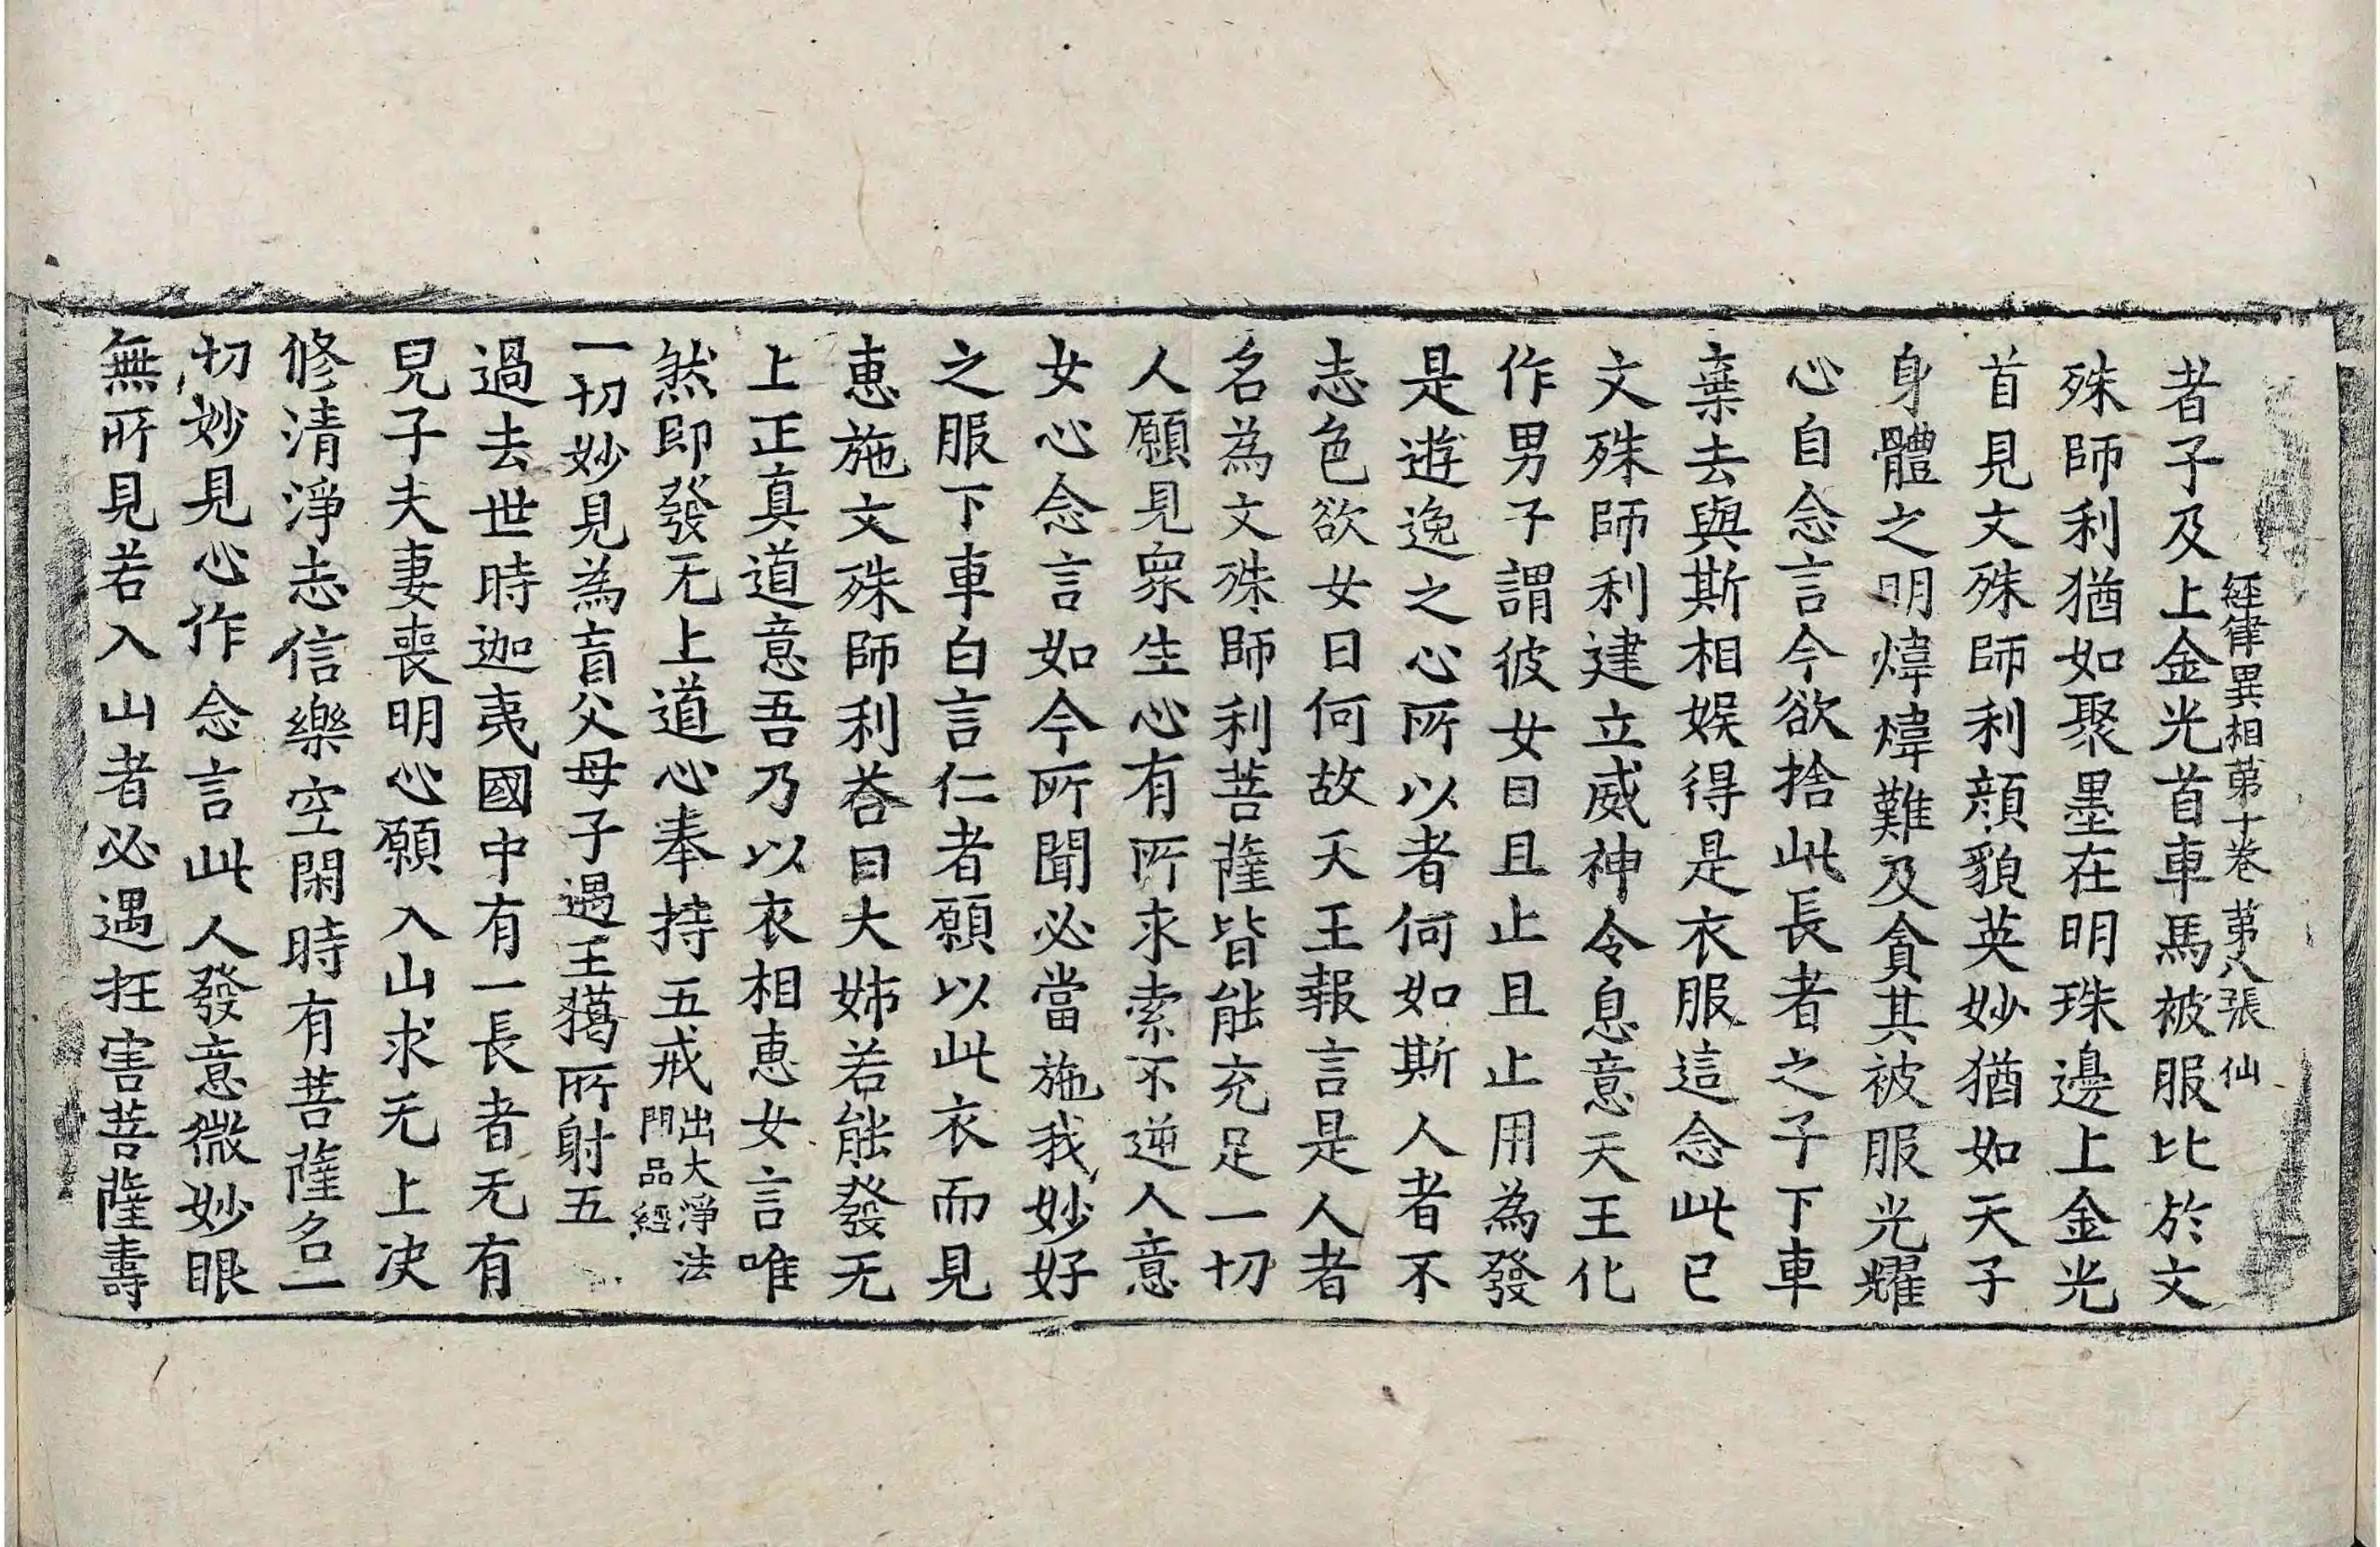 經律異相苐十卷 苐八張 仙
者子及上金光首車馬被服比於文
殊師利猶如聚墨在明珠邊上金光
首見文殊師利顔貌英妙猶如天子
身體之明煒煒難及貪其被服光耀
心自念言今欲捨此長者之子下車
棄去與斯相娛得是衣服這念此已
文殊師利建立威神令息意天王化
作男子謂彼女曰且止且止用為發
是遊逸之心所以者何如斯人者不
志色欲女曰何故天王報言是人者
名為文殊師利菩薩皆能充足一切
人願見衆生心有所求索不逆人意
女心念言如今所聞必當施我妙好
之服下車白言仁者願以此衣而見
恵施文殊師利荅曰大姊若能發无
上正真道意吾乃以衣相恵女言唯
然即發无上道心奉持五戒出大淨法門品經
一切妙見為盲父母子遇王獦所射五
過去世時迦夷國中有一長者无有
兒子夫妻喪明心願入山求无上决
修清淨志信樂空閑時有菩薩名一
切妙見心作念言此人發意微妙眼
無所見若入山者必遇抂害菩薩壽